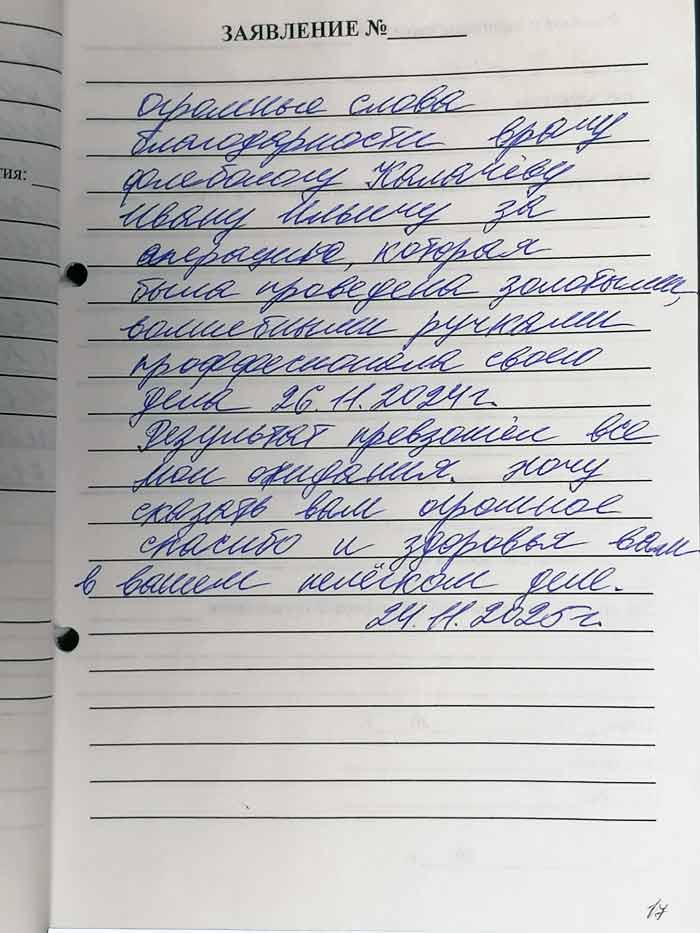 ЗАЯВЛЕНИЕ №
тия:
огромные слова
благодарности врачу
флебологу Калачёву
Ивану Ильичу за
операцию, которая
была проведена золотыми,
волшебными ручками
проффесионала своего
дела 26.11.2024г.
Результат превзошёл все
мои ожидания. Хочу
сказать вам огромное
спасибо и здоровья вам
в вашем нелёгком деле.
24.11.2025г.
17